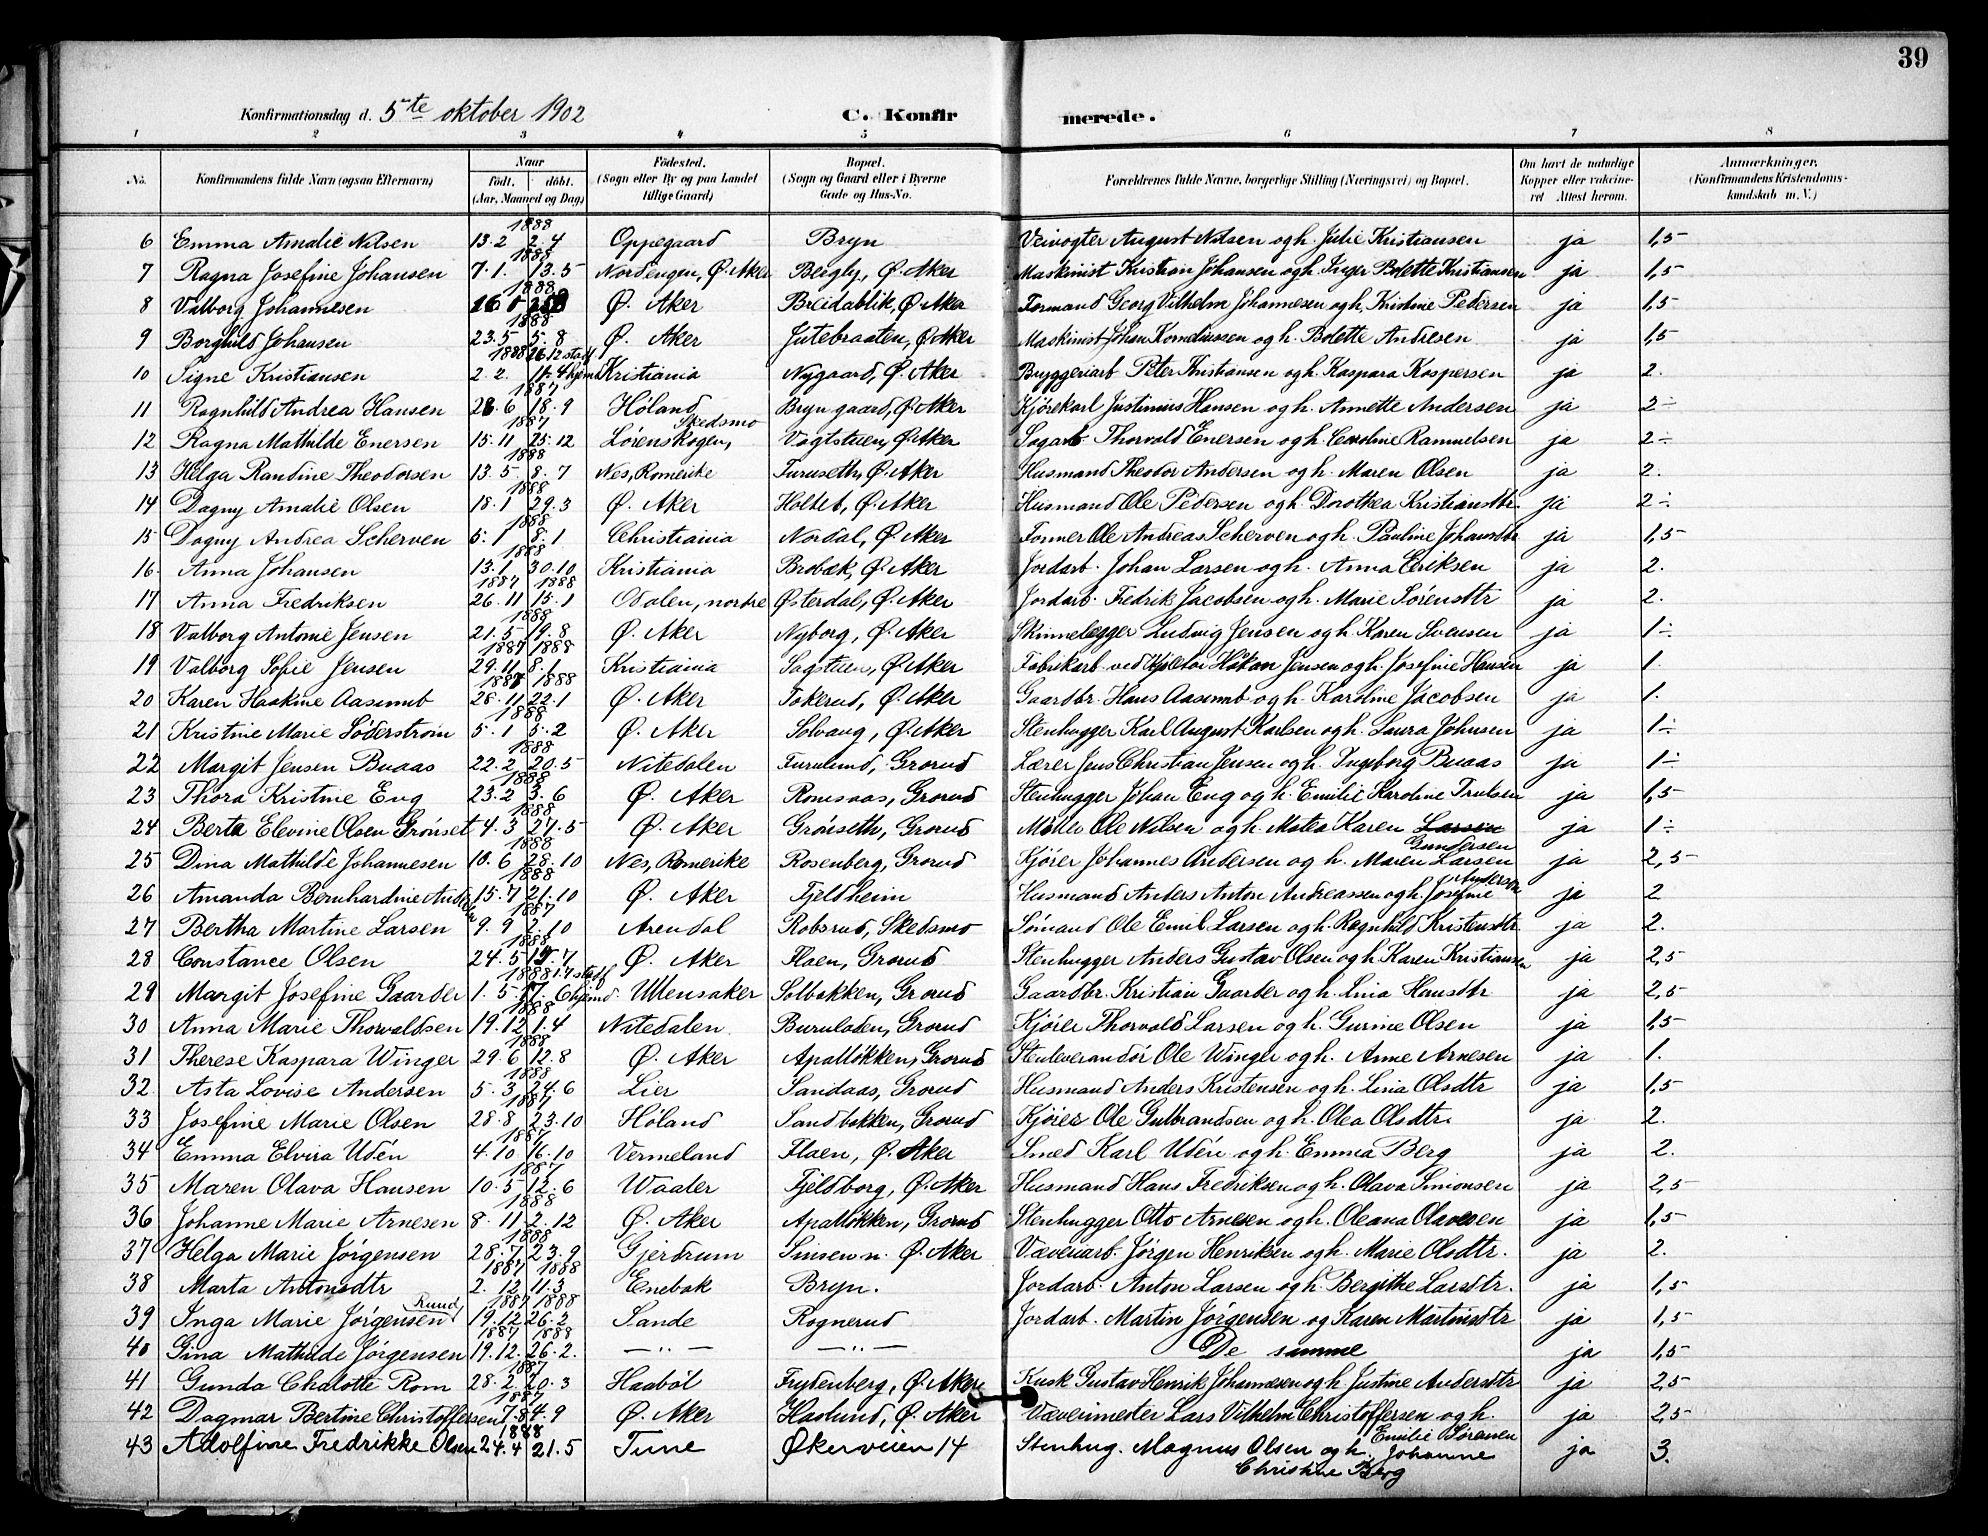 39
Konfirmationsdag d. 5te oktober 1902 C. Konfirmerede.
1 2 3 4 5 6 7 8
No. Konfirmandens fulde Navn (ogsaa Efternavn) Naar födt. döbt. (Aar, Maaned og Dag) Födested. (Sogn eller By og paa Landet tillige Gaard) Bopæl. (Sogn og Gaard eller i Byerne Gade og Hus-No. Forældrenes fulde Navne, borgerlige Stilling (Næringsvei) og Bopæl. Om havt de naturlige Kopper eller vaccineret Attest herom. Anmærkninger. (Konfirmandens Kristendomskundskab m. V.)
6 Emma Amalie Nilsen 1888 13.2 2.4 Oppegaard Bryn Veivogter August Nilsen og h. Julie Kristiansen ja 1,5
7 Ragna Josefine Johansen 1888 7.1. 13.5 Nordengen, Ø. Aker Bergly, Ø. Aker Maskinist Kristian Johansen og h. Inger Bolette Kristiansen ja 1,5
8 Valborg Johannesen 1888 Ø. Aker Breidablik, Ø. Aker Formand Georg Vilhelm Johannesen og h. Kristine Pedersen ja 1,5
9 Borghild Johansen 1888 23.5 5.8 Ø. Aker Jutebraaten, Ø. Aker Maskinist Johan Korneliussen og h. Bolette Andresen ja 1,5
10 Signe Kristiansen 1888 2.2. 26.12 stadf 11.4 hjemd Kristiania Nygaard, Ø. Aker Bryggeriarb. Peter Kristiansen og h. Kaspara Kaspersen ja 2.
11 Ragnhild Andrea Hansen 1887 28.6 18.9 Høland Bryn gaard, Ø. Aker Kjørekarl Justinius Hansen og h. Annette Andersen ja 2÷
12 Ragna Mathilde Enersen 1887 15.11 25.12 Lørenskogen, Skedsmo Vagtstuen, Ø. Aker Sagarb. Thorvald Enersen og h. Caroline Ramuelsen ja 2÷
13 Helga Randine Theodorsen 1888 13.5 8.7 Nes, Romerike Furuseth, Ø. Aker Husmand Theodor Andersen og h. Maren Olsen ja 2.
14 Dagny Amalie Olsen 1888 18.1 29.3 Ø. Aker Holtet, Ø. Aker Husmand Ole Pedersen og h. Dorothea Kristiansdtr. ja 2÷
15 Dagny Andrea Scherven 1888 5.1 8.1 Christiania Nordal, Ø. Aker Former Ole Andreas Scherven og h. Pauline Johansdtr ja 1,5
16 Anna Johansen 1888 13.1 30.10 Kristiania Brobæk, Ø. Aker Jordarb. Johan Larsen og h. Anna Eriksen ja 2.
17 Anna Fredriksen 1887 1888 26.11 15.1 Odalen, nordre Østerdal, Ø. Aker Jordarb. Fredrik Jacobsen og h. Marie Sørensdtr ja 2.
18 Valborg Antonie Jensen 1888 21.5 19.8 Ø. Aker Nyborg, Ø. Aker Skinnelægger Ludvig Jensen og h. Karen Svensen ja 1÷
19 Valborg Sofie Jensen 1887 1888 29.11 8.1 Kristiania Sagstuen, Ø. Aker Fabrikarb. ved Håkon Jensen og h. Josefine Hansen ja 1.
20 Karen Haakine Aasemb 1887 1888 28.11 22.1 Ø. Aker Tokerud, Ø. Aker Gaardbr. Hans Aasemb og h. Karoline Jacobsen ja 1.
21 Kristine Marie Söderström 1888 5.1 5.2 Ø. Aker Solvang, Ø. Aker Stenhugger Karl August Karlsen og h. Laura Johnsen ja 1÷
22 Margit Jensen Buaas 1888 22.2 20.5 Nitedalen Furulund, Grorud Lærer Jens Christian Jensen og h. Ingeborg Buaas ja 1÷
23 Thora Kristine Eng 1888 23.2 3.6 Ø. Aker Romsaas, Grorud Stenhugger Johan Eng og h. Emilie Karoline Trulsen ja 1,5
24 Berta Elevine Olsen Grönset 1888 4.3 27.5 Ø. Aker Grönseth, Grorud Møller Ole Nilsen og h. Matea Karen Larsen Gundersen ja 1÷
25 Dina Mathilde Johannesen 1888 10.6 28.10 Nes, Romerike Rosenberg, Grorud Kjører Johannes Andersen og h. Maren Larsen ja 2,5
26 Amanda Bernhardine Andersen 1888 15.7 21.10 Ø. Aker Fjeldheim Husmand Anders Anton Andreassen og h. Josefine Anderson ja 2
27 Bertha Martine Larsen 1887 9.9 2.10 Arendal Robsrud, Skedsmo Sømand Ole Emil Larsen og h. Ragnhild Kristensdtr ja 2.
28 Constance Olsen 1888 24.5 15.7 Ø. Aker Flaen, Grorud Stenhugger Anders Gustav Olsen og h. Karen Kristiansen ja 2,5
29 Margit Josefine Gaarder 1888 1.5. 1.7 stadf 6 hjemd. Ullensaker Solbakken, Grorud Gaardbr. Kristian Gaarder og h. Lina Hansdtr ja 2,5
30 Anna Marie Thorvaldsen 1888 19.12 1.4 Nitedalen Buruloden, Grorud Kjører Thorvald Larsen og h. Gurine Olsen ja 1,5
31 Therese Kaspara Winger 1888 29.6 12.8 Ø. Aker Apalløkken, Grorud Stenleverandør Ole Winger og h. Anne Arnesen ja 1.
32 Asta Lovise Andersen 1888 5.3 24.6 Lier Sandaas, Grorud Husmand Anders Kristensen og h. Lina Olsdtr ja 1,5
33 Josefine Marie Olsen 1887 28.8 23.10 Høland Sandbakken, Grorud Kjører Ole Gulbrandsen og h. Olea Olsdtr. ja 2.
34 Emma Elvira Udén 1887 4.10 16.10 Vermeland Flaen, Ø. Aker Smed Karl Udén og h. Emma Berg ja 2.
35 Maren Olava Hansen 1887 10.5 12.6 Waaler Fjeldborg, Ø. Aker Husmand Hans Fredriksen og h. Olava Simonsen ja 2,5
36 Johanne Marie Arnesen 1888 8.11 2.12 Ø. Aker Apalløkken, Grorud Stenhugger Otto Arnesen og h. Oleana Olavesen ja 1,5
37 Helga Marie Jörgensen 1888 28.7 23.9 Gjerdrum Sinsen n. Ø. Aker Væveriarb. Jörgen Henriksen og h. Marie Olsdtr. ja 2.
38 Marta Antonsdtr 1887 1888 2.12 11.3 Enebak Bryn. Jordarb. Anton Larsen og h. Bergithe Larsdtr. ja 1,5
39 Inga Marie Jörgensen Ruud, 1887 1888 19.12 26.2 Sande Rognerud Jordarb. Martin Jörgensen og Karen Martinsdtr ja 1,5
40 Gina Mathilde Jörgensen 1887 1888 19.12. 26.2. — „ — — „ — De samme ja 1,5
41 Gunda Chalotte Rom 1887 28.2 20.3 Haaböl Frydenberg, Ø. Aker Kusk Gustav Henrik Johannesen og h. Justine Andersdtr ja 2,5
42 Dagmar Bertine Christoffersen 1887 7.8 4.9 Ø. Aker Haslund, Ø. Aker Vævermester Lars Vilhelm Christoffersen og h. Emilie Sörensen ja 2,5
43 Adolfine Fredrikke Olsen 1888 24.4 21.5 Tune Økerveien 14 Stenhug. Magnus Olsen og h. Johanne Christine Berg ja 3.